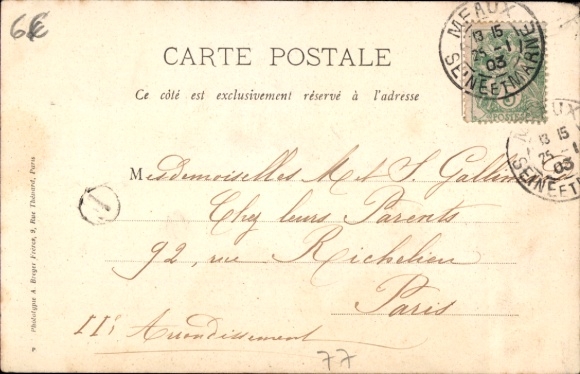 6€
MEAUX
13 15
25 - 1
03
SEINE ET MARNE
CARTE POSTALE
Ce côté est exclusivement réservé à l'adresse
MEAUX
13 15
25 - 1
03
SEINE ET M
Mesdemoiselles M. et S.
Chez leurs Parents
92, rue Richelieu
Paris
IIe Arrondissement
77
1
Phototypie A. Breger Frères, 9, Rue Thénard, Paris